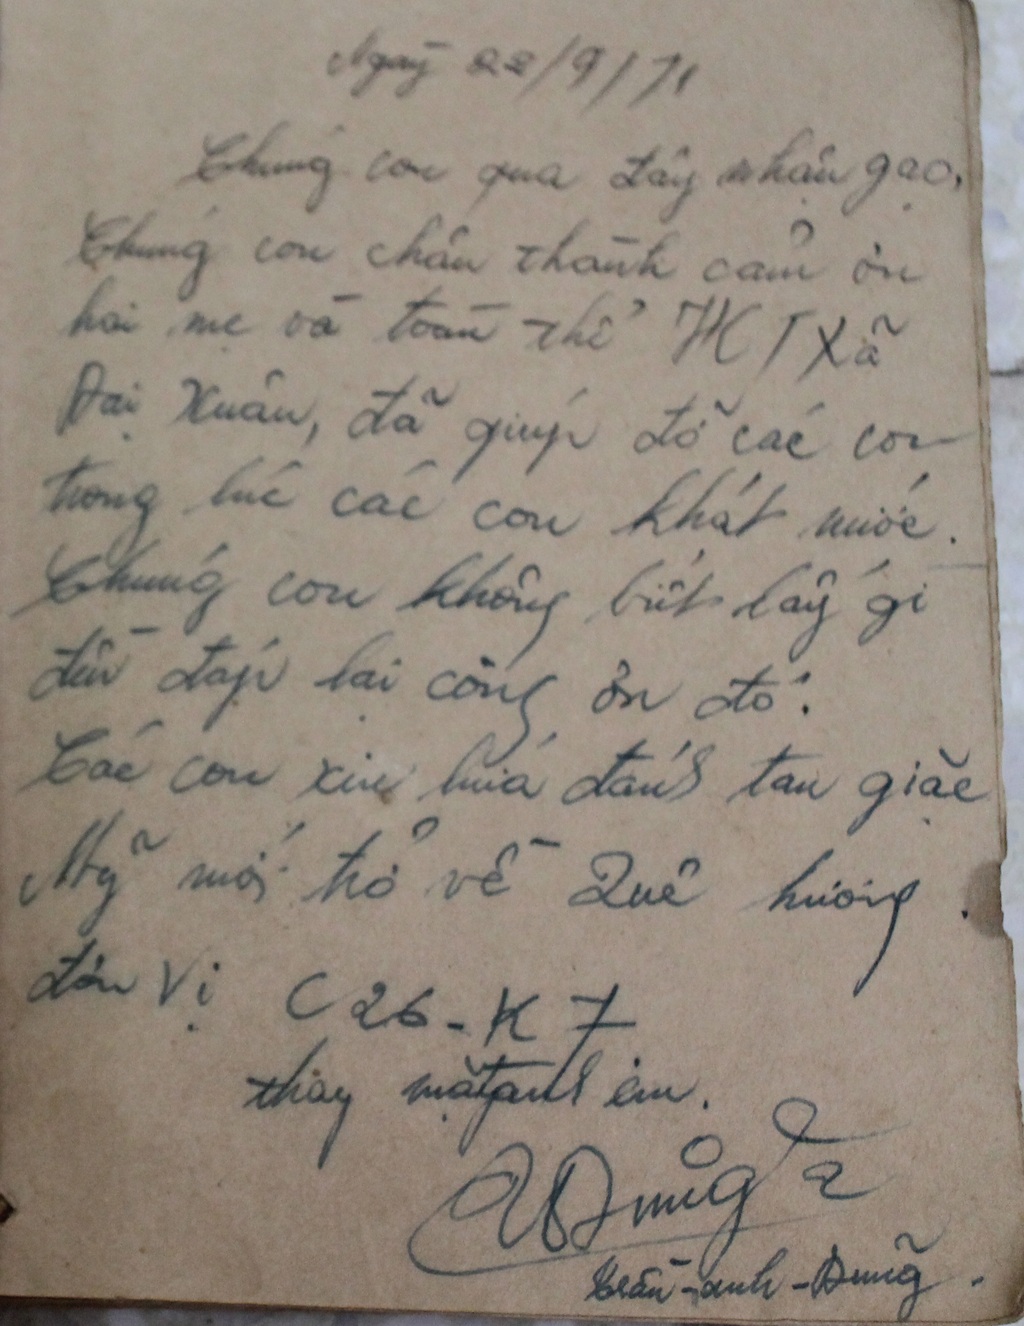 Ngày 22/9/71
Chúng con qua đây nhận gạo,
Chúng con chân thành cảm ơn
hai mẹ và toàn thể HKT Xã
Đại Xuân, đã giúp đỡ các con
trong lúc các con khát nước.
Chúng con không biết lấy gì
đền đáp lại công ơn đó.
Các con xin hứa đánh tan giặc
Mỹ mới trở về Quê hương.
đơn vị C26-K7
thay mặt anh em.
Dũng
Trần-anh-Dũng.